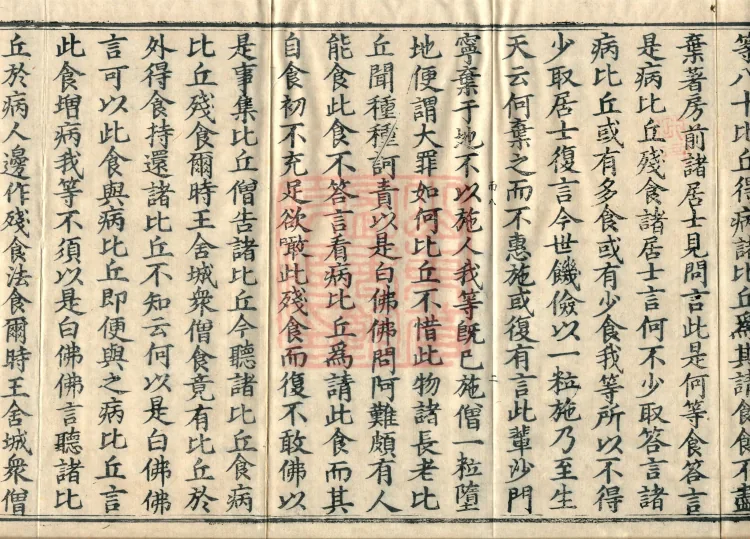 等八十比丘得病諸比丘爲其請食食不盡
棄著房前諸居士見問言此是何等食答言
是病比丘殘食諸居士言何不少取答言諸
病比丘或有多食或有少食我等所以不得
少取居士復言今世饑儉以一粒施乃至生
天云何棄之而不惠施或復有言此輩沙門
寧棄于地不以施人我等旣已施僧一粒墮
地便謂大罪如何比丘不惜此物諸長老比
丘聞種種訶責以是白佛佛問阿難頗有人
能食此食不答言看病比丘爲請此食而其
自食初不充足欲噉此殘食而復不敢佛以
是事集比丘僧告諸比丘今聽諸比丘食病
比丘殘食爾時王舍城衆僧食竟有比丘於
外得食持還諸比丘不知云何以是白佛佛
言可以此食與病比丘即便與之病比丘言
此食增病我等不須以是白佛佛言聽諸比
丘於病人邊作殘食法食爾時王舍城衆僧